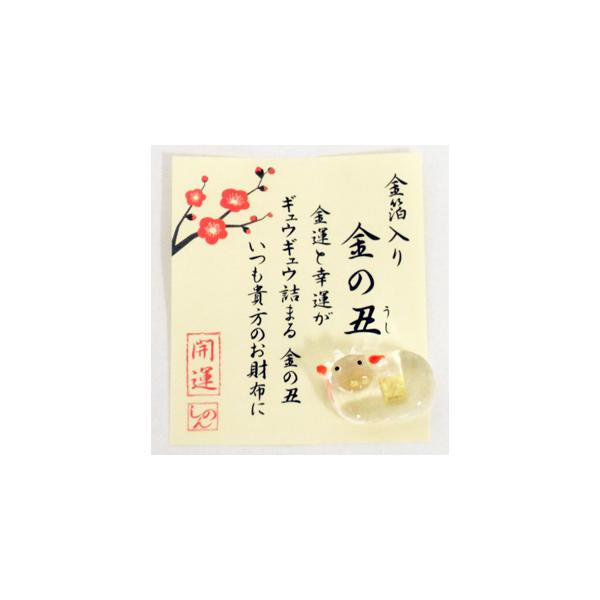 金箔入り
金の丑
うし
金運と幸運が
ギュウギュウ詰まる 金の丑
いつも貴方のお財布に
開運
しのん